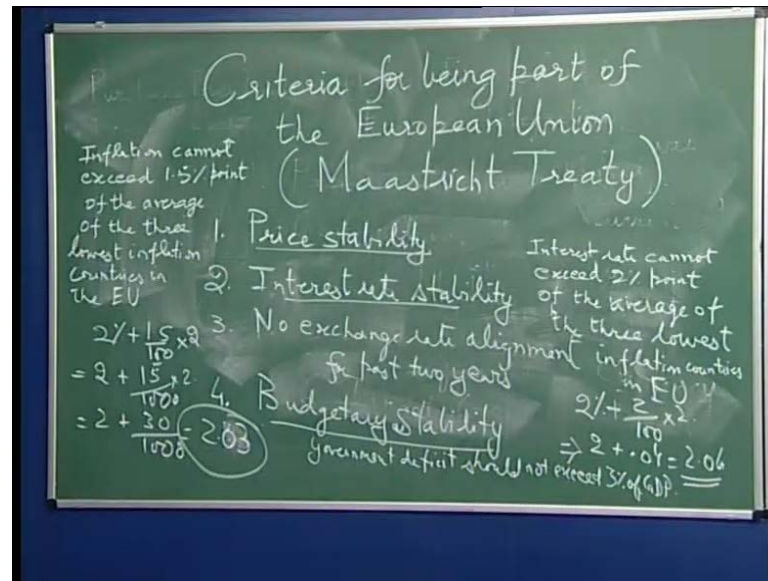 Criteria for being part of
the European Union
(Maastricht Treaty)
Inflation cannot
exceed 1.5% point
of the average
of the three
lowest inflation
countries in
the EU
2% + 1.5/100 × 2
= 2 + 15/1000 × 2
= 2 + 30/1000 = 2.03
1. Price stability
2. Interest rate stability
3. No exchange rate alignment
for past two years
4. Budgetary stability
government deficit should not exceed 3% of GDP.
Interest rate cannot
exceed 2% point
of the average of
the three lowest
inflation countries
in EU
2% + 2/100 × 2
⇒ 2 + .04 = 2.04